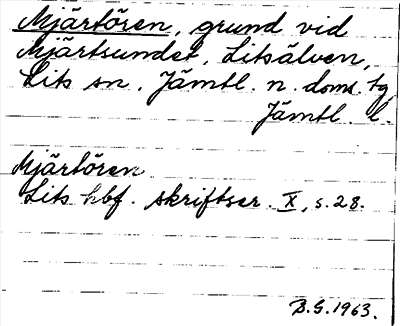 Mjärtören, grund vid
Mjärtsundet, Litsälven,
Lits sn, Jämtl. n. doms. tg
Jämtl. l.
Mjärtören
Lits hbf. skriftser. X, s. 28.
B.G. 1963.